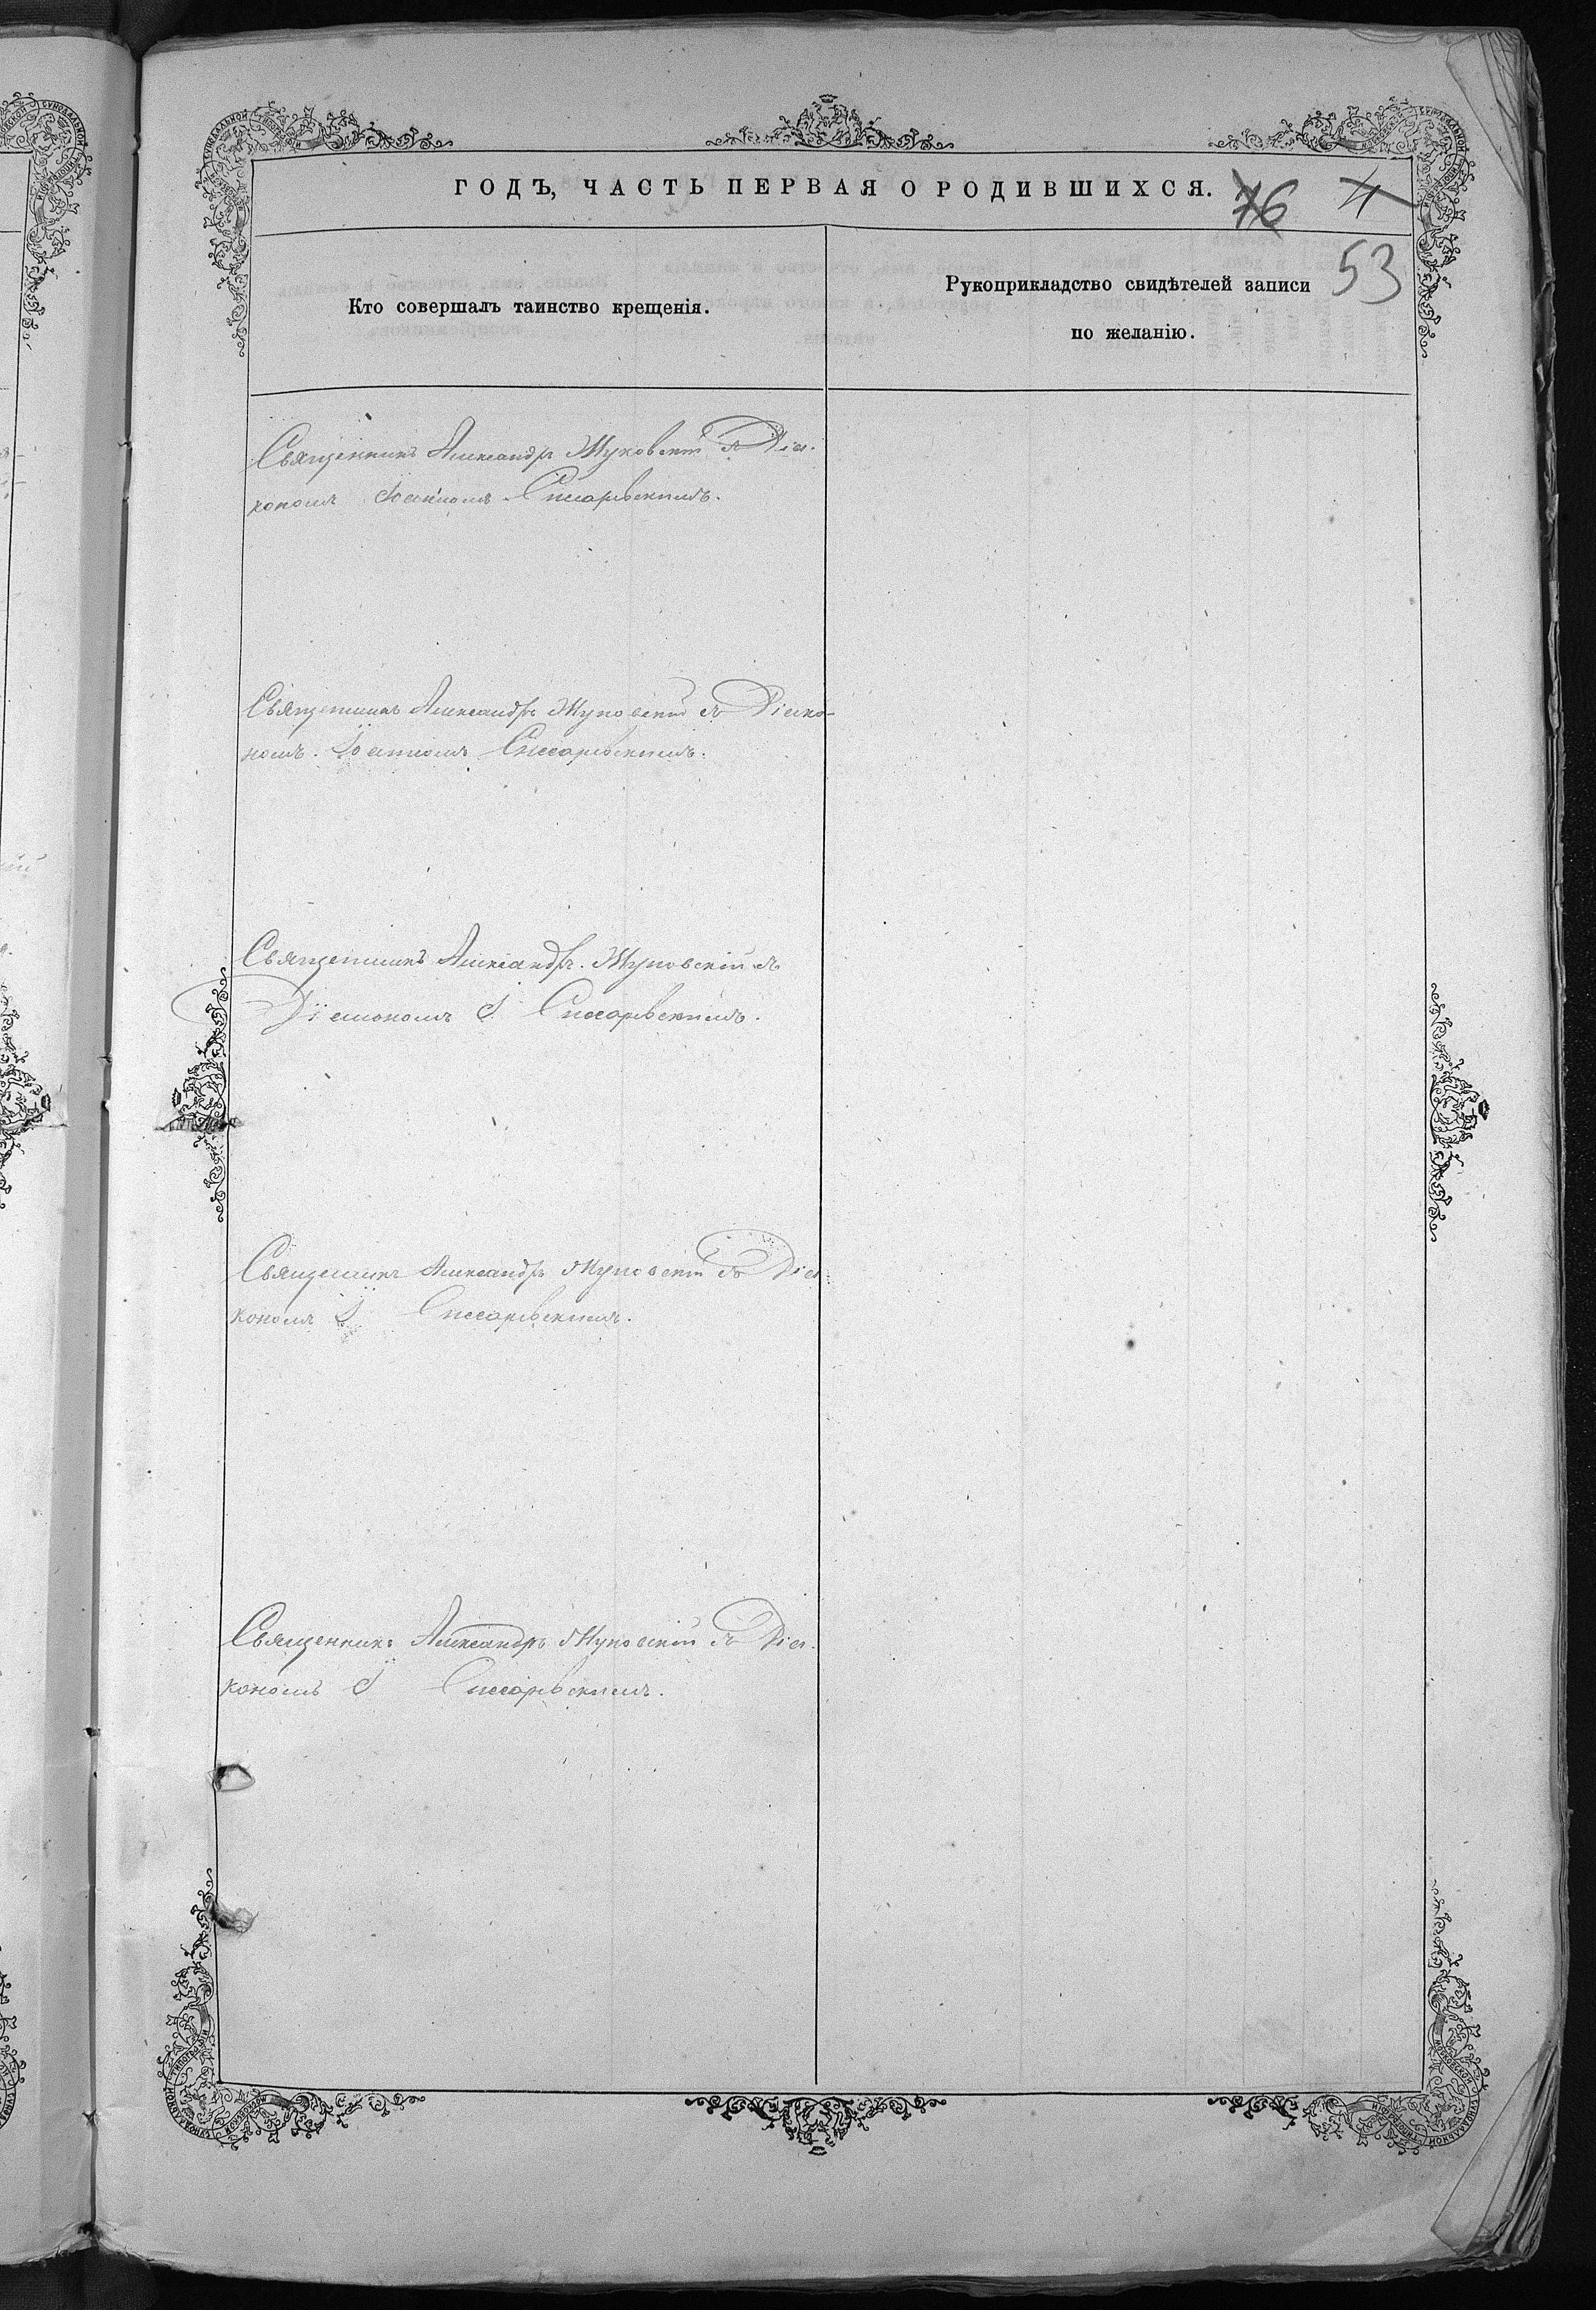 ГОДЪ, ЧАСТЬ ПЕРВАЯ О РОДИВШИХСЯ.
76 4
53
Кто совершалъ таинство крещенія.
Рукоприкладство свидѣтелей записи
по желанію.
Священникъ Александръ Жуковскій съ Діа-
кономъ Іоанномъ Слюсаревскимъ.
Священникъ Александръ Жуковскій съ Діако-
номъ Іоанномъ Слюсаревскимъ.
Священникъ Александръ Жуковскій съ
Діакономъ І Слюсаревскимъ.
Священникъ Александръ Жуковскій съ Діа
кономъ І Слюсаревскимъ.
Священникъ Александръ Жуковскій съ Діа-
кономъ І Слюсаревскимъ.